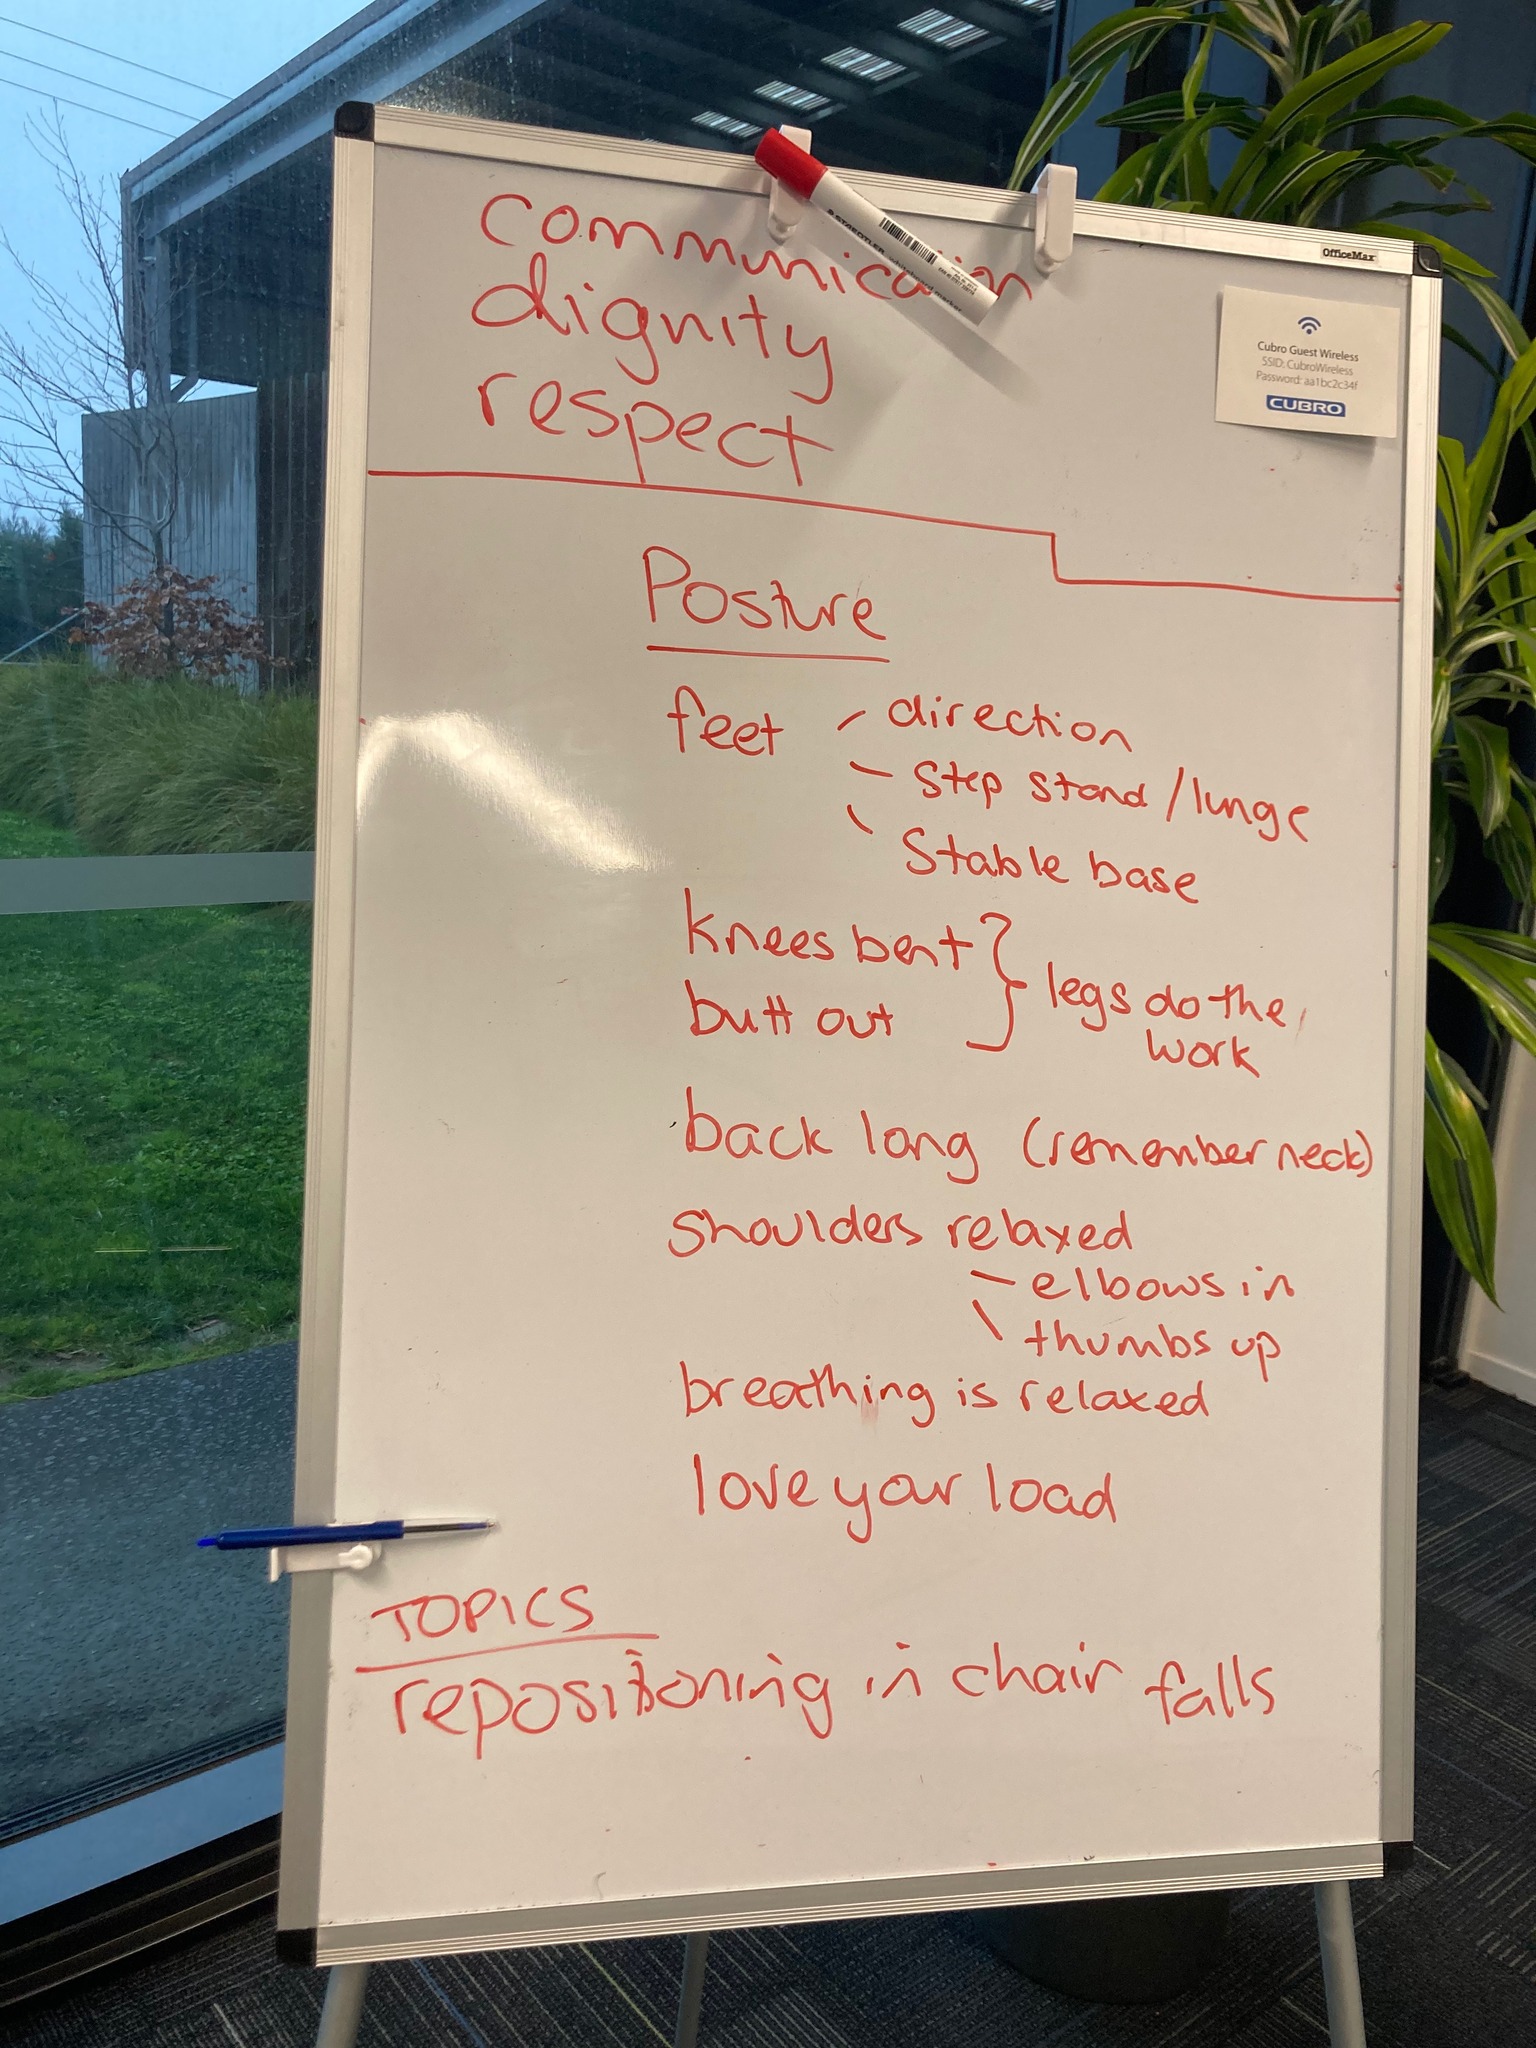 communication
dignity
respect
OfficeMax
Cubro Guest Wireless
SSID: CubroWireless
Password: aa1bc2c34f
CUBRO
STAEDTLER whiteboard marker
Posture
feet - direction
- step stand / lunge
- Stable base
knees bent
butt out } legs do the
work
back long (remember neck)
shoulders relaxed
- elbows in
- thumbs up
breathing is relaxed
love your load
TOPICS
repositioning in chair falls